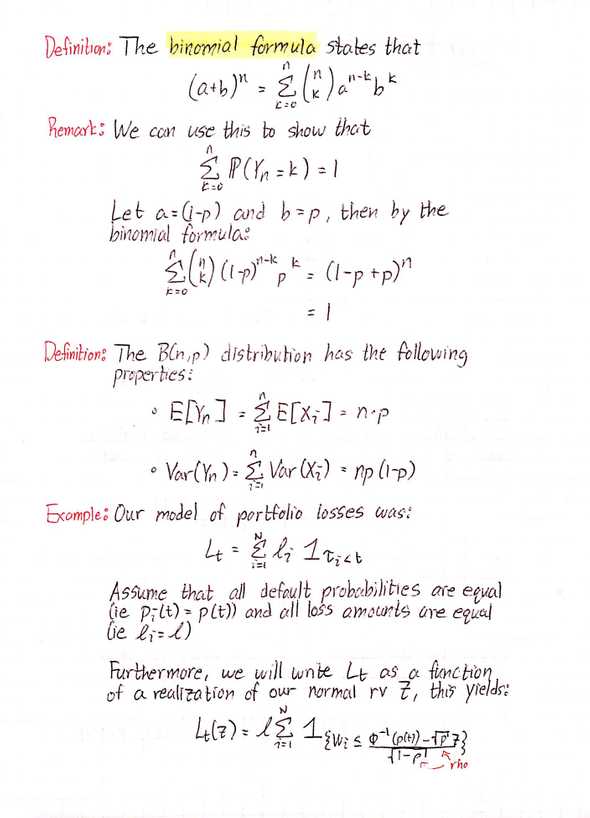 Definition: The binomial formula states that
(a+b)^n = Σ_{k=0}^{n} (n k) a^{n-k} b^k
Remark: We can use this to show that
Σ_{k=0}^{n} ℙ(Y_n = k) = 1
Let a=(1-p) and b=p, then by the
binomial formula:
Σ_{k=0}^{n} (n k) (1-p)^{n-k} p^k = (1-p+p)^n
= 1
Definition: The B(n,p) distribution has the following
properties:
• E[Y_n] = Σ_{i=1}^{n} E[X_i] = n·p
• Var(Y_n) = Σ_{i=1}^{n} Var(X_i) = np(1-p)
Example: Our model of portfolio losses was:
L_t = Σ_{i=1}^{N} l_i 1_{τ_i<t}
Assume that all default probabilities are equal
(ie p_i(t) = p(t)) and all loss amounts are equal
(ie l_i = l)
Furthermore, we will write L_t as a function
of a realization of our normal rv Z, this yields:
L_t(z) = l Σ_{i=1}^{N} 1_{{W_i ≤ (Φ^{-1}(p(t)) - √ρ z)/√(1-ρ)}}
rho